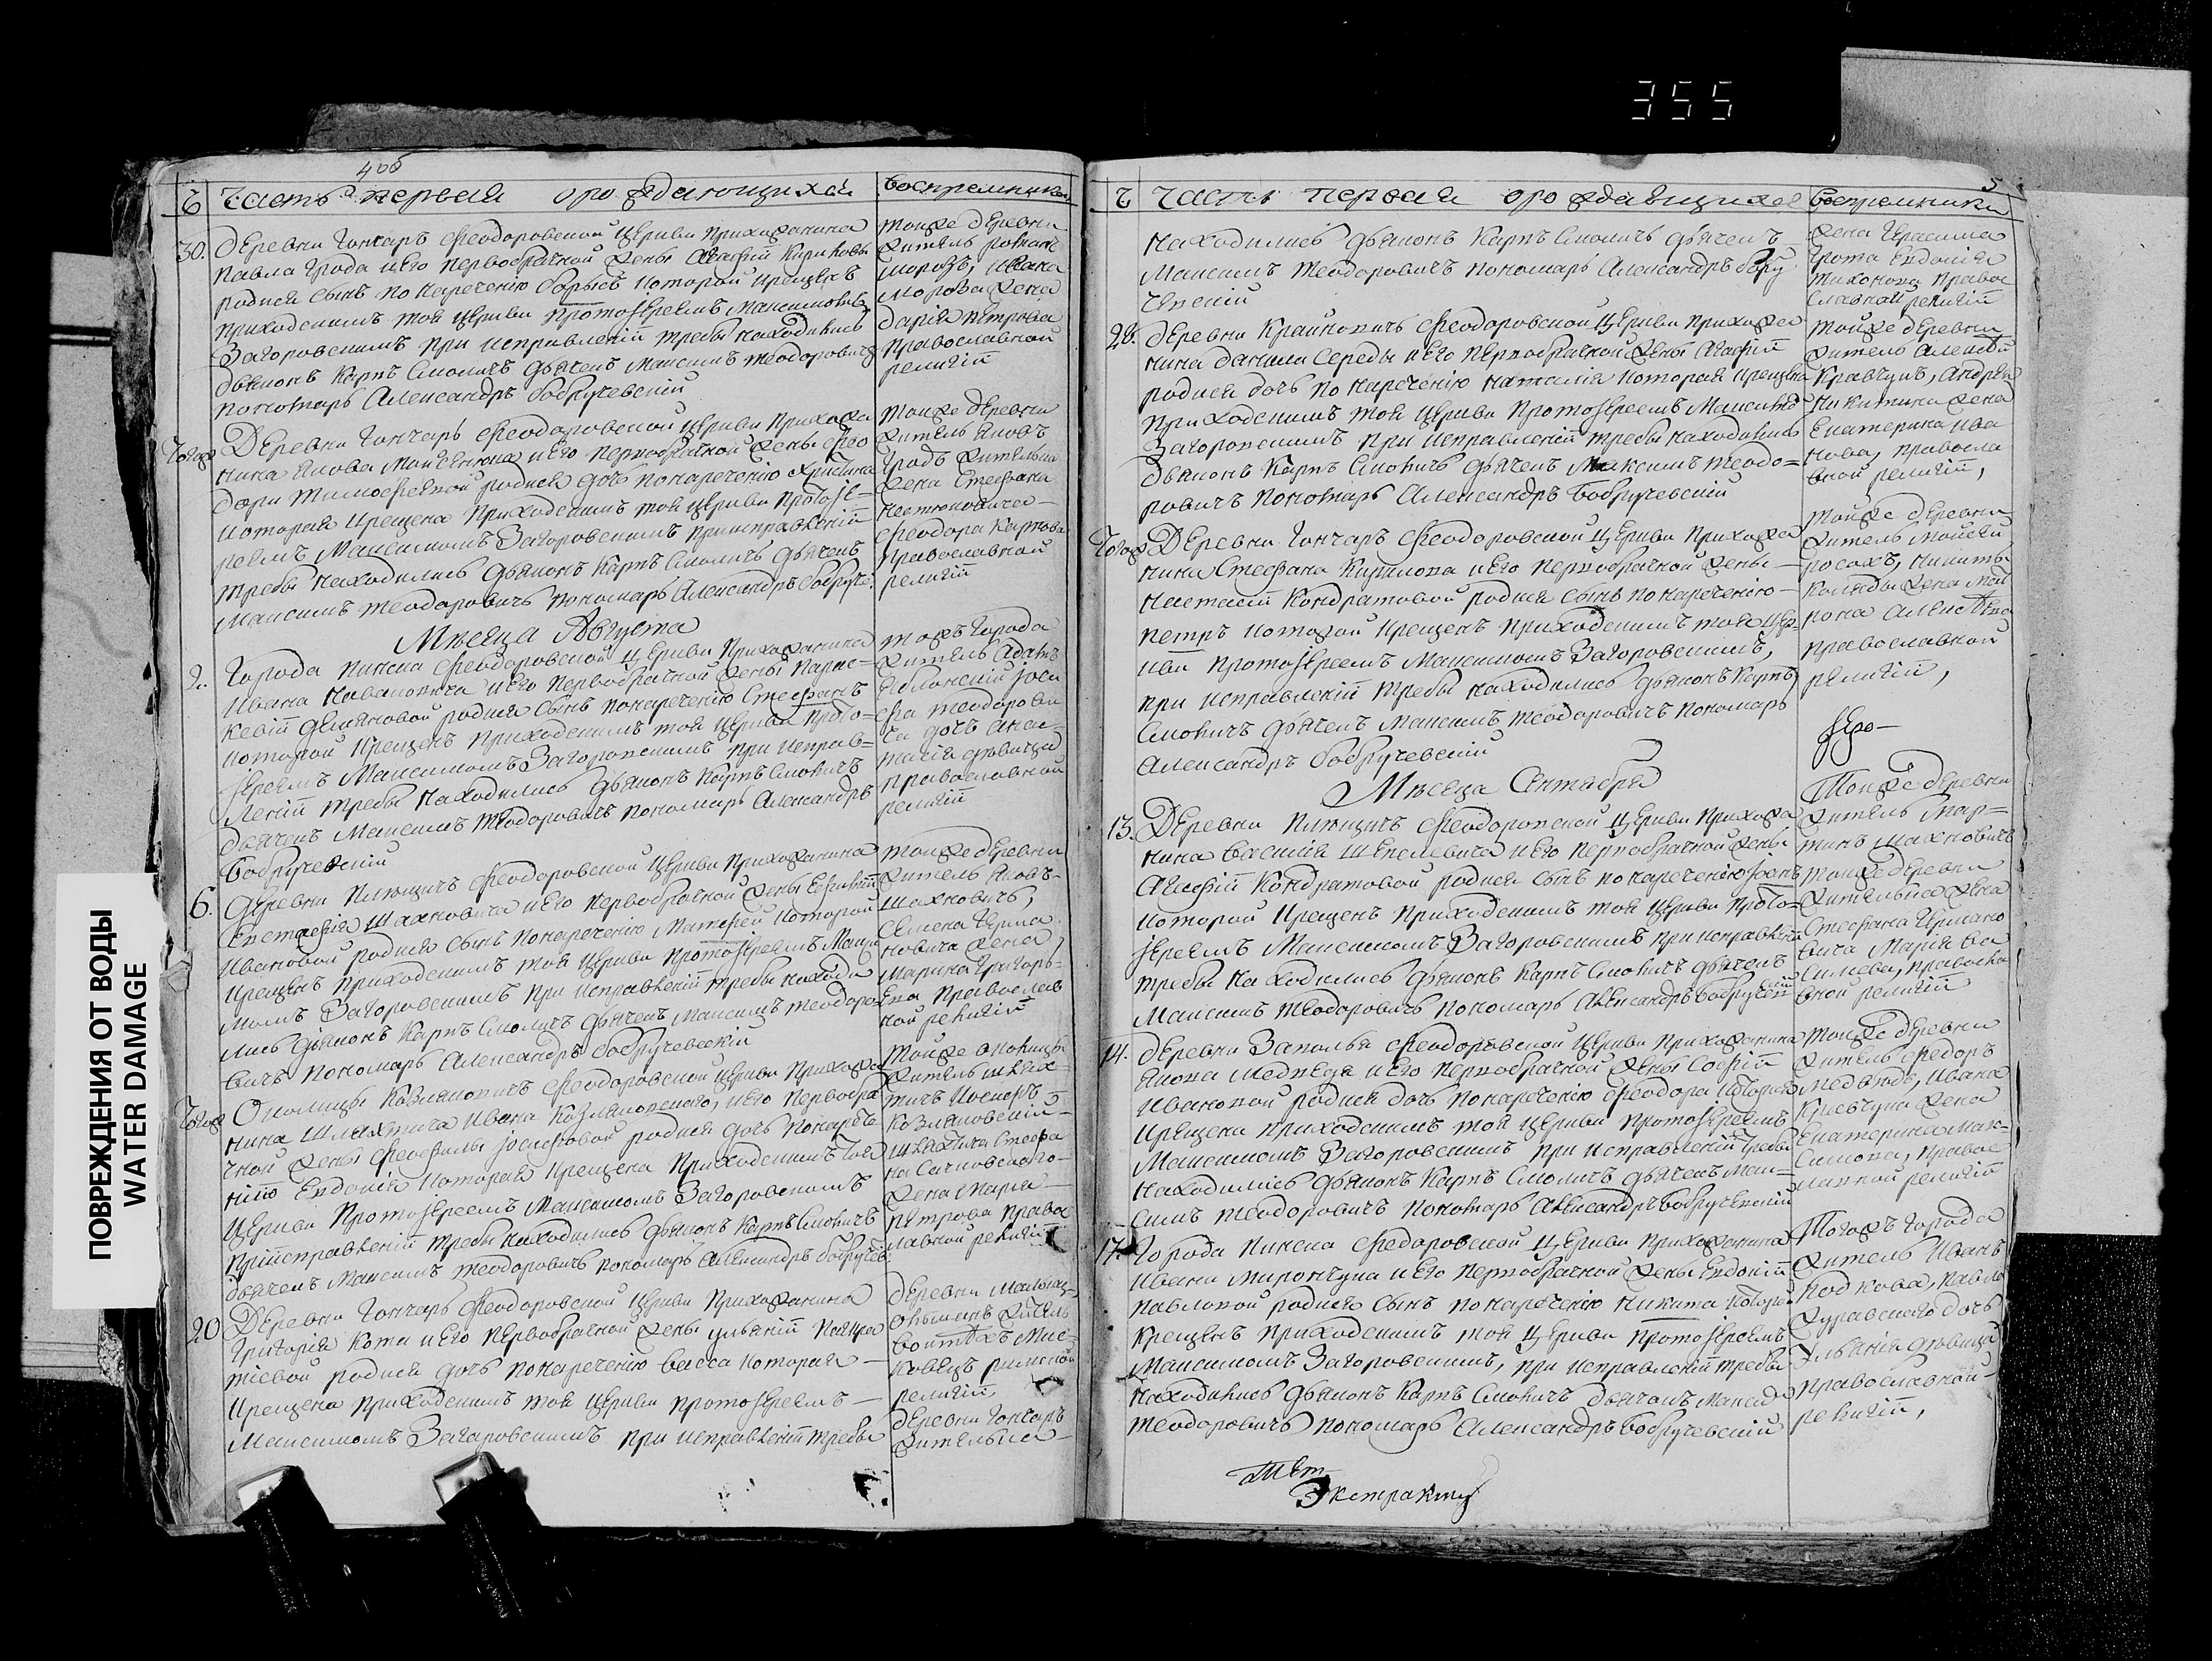 355
ПОВРЕЖДЕНИЯ ОТ ВОДЫ
WATER DAMAGE
406
Ч Часть первая о рождающихся
воспремники
30. Деревни Гончаръ Феодоровской Церкви прихожанина
Павла Грода и Его первобрачной жены Агафiи
родися сынъ по нареченiю Борысъ которой крещенъ
приходскимъ тоя церкви протоiереемъ Максимомъ
Загоровскимъ при исправленiй требы находились
дьяконъ Карпъ Смоличъ дьячекъ Максимъ Теодоровичъ
пономарь Александръ Бобручевскiй
тойже деревни
житель Романъ
Морозъ, Ивана
Мороза жена
Дарiя Петрова
православной
религiй
Тогож Деревни Гончаръ Феодоровской Церкви прихожа
нина Якова и Его первобрачной жены Фео
доры Тимофеевой родися дочь по нареченiю Христина
которая крещена приходскимъ тоя церкви протоiе=
реемъ Максимомъ Загоровскимъ при исправленiй
требы находились дьяконъ Карпъ Смоличъ дьячекъ
Максимъ Теодоровичъ пономарь Александръ Бобруче.
тойже деревни
житель Яковъ
Гродъ жителька
жена Стефана
Феодора Карпова
православной
религiй
Мѣсяца Августа
2. Города Пинска Феодоровской Церкви прихожанина
Ивана и Его первобрачной жены Парас=
кевiй Демяновой родися сынъ по нареченiю Стефанъ
которой крещенъ приходскимъ тоя церкви прото=
iереемъ Максимомъ Загоровскимъ при исправ=
ленiй требы находились дьяконъ Карпъ Смоличъ
дьячекъ Максимъ Теодоровичъ пономарь Александръ
Бобручевскiй
тогожъ города
житель Адамъ
Iоси
фа Теодорови
ча дочь Анас=
тасiя дѣвица
православной
религiй
6. Деревни Пинковичъ Феодоровской Церкви прихожанина
Евстафiя Шахновича и Его первобрачной жены
Ивановой родися сынъ по нареченiю Матфей которой
крещенъ приходскимъ тоя церкви протоiереемъ Макси
момъ Загоровскимъ при исправленiй требы находи
лись дьяконъ Карпъ Смоличъ дьячекъ Максимъ Теодоро
вичъ пономарь Александръ Бобручевскiй
тойже деревни
житель Яковъ
Шахновичъ,
Семена Герма
новича жена
Марина Григорь=
ева православ
ной религiй
Тогож Околицы Козляковичъ Феодоровской Церкви прихожа
нина шляхтича Ивана Козляковскаго, и Его первобра
чной жены Феофилы Iосифовой родися дочь по нарече
нiю Евдокiя которая крещена приходскимъ тоя
Церкви Протоiереемъ Максимомъ Загоровскимъ
при исправленiй требы находились дьяконъ Карпъ Смоличъ
дьячекъ Максимъ Теодоровичъ пономарь Александръ Бобручев.
тойже околицы
житель шлях=
тичъ Иосифъ
Козляковскiй
шляхтича Стефа
на
жена Марiя
Петрова право
славной религiй
20 Деревни Гончаръ Феодоровской Церкви прихожанина
Григорiя Кота и Его первобрачной жены Ульянiй
родися дочь по нареченiю Васса которая
крещена приходскимъ тоя церкви протоiереемъ
Максимомъ Загоровскимъ при исправленiй требы
деревни
житель
религiй,
деревни Гончаръ
жителька
5
Ч Часть первая о рождающихся
воспремники
находились дьяконъ Карпъ Смоличъ дьячекъ
Максимъ Теодоровичъ пономарь Александръ Бобру
чевскiй
жена Герасима
Грота Евдокiя
Тихонова право
славной религiй
28. Деревни Крайновичъ Феодоровской Церкви прихожа
нина Данила Середы и Его первобрачной жены Агафiй
родися дочь по нареченiю Наталiя которая крещена
приходскимъ тоя церкви Протоiереемъ Максимом
Загоровскимъ при исправленiй требы находились
дьяконъ Карпъ Смоличъ дьячекъ Максимъ Теодо=
ровичъ пономарь Александръ Бобручевскiй
тойже деревни
житель Алексѣй
Кравчукъ, Андрея
Никитина жена
Екатерина Ива
нова, правосла
вной религiй,
Тогож Деревни Гончаръ Феодоровской Церкви прихожа
нина Стефана Кирилова и Его первобрачной жены
Настасiй Кондратовой родися сынъ по нареченiю
Петръ которой крещенъ приходскимъ тоя цер=
кви протоiереемъ Максимомъ Загоровскимъ,
при исправленiй требы находились дьяконъ Карпъ
Смоличъ дьячекъ Максимъ Теодоровичъ пономарь
Александръ Бобручевскiй
тойже деревни
житель Мойсей
Никиты
Коляды жена
православной
религiй,
Мѣсяца Сентября
13. Деревни Пинковичъ Феодоровской Церкви прихожа
нина Василiя Шепелевича и Его первобрачной жены
Агафiй Кондратовой родися сынъ по нареченiю
которой крещенъ приходскимъ тоя церкви прото=
iереемъ Максимомъ Загоровскимъ при исправленiй
требы находились дьяконъ Карпъ Смоличъ дьячекъ
Максимъ Теодоровичъ пономарь Александръ Бобручевскiй
Тойже деревни
житель Мар=
тинъ Шахновичъ
тойже деревни
жителька жена
Стефана Германо
вича Марiя Ва
силиева, правосла
вной религiй
14. Деревни Заполья Феодоровской Церкви прихожанина
Якова Медведя и Его первобрачной жены Софiй
Ивановой родися дочь по нареченiю Феодора которая
крещена приходскимъ тоя церкви протоiереемъ
Максимомъ Загоровскимъ при исправленiй требы
находились дьяконъ Карпъ Смоличъ дьячекъ Мак=
симъ Теодоровичъ пономарь Александръ Бобручевскiй
тойже деревни
житель Федоръ
Медвядь, Ивана
жена
Екатерина Мак=
симова, право
славной религiй
17. Города Пинска Федоровской Церкви прихожанина
Ивана Мирончука и Его первобрачной жены Евдокiй
Павловой родися сынъ по нареченiю Никита которой
крещенъ приходскимъ тоя церкви протоiереемъ
Максимомъ Загоровскимъ, при исправленiй требы
находились дьяконъ Карпъ Смоличъ дьячекъ Максимъ
Теодоровичъ пономарь Александръ Бобручевскiй
Тогожъ города
житель Иванъ
Подкова, Павла
Журавского дочь
Ульянiя дѣвица
православной
религiй,
Экстракту